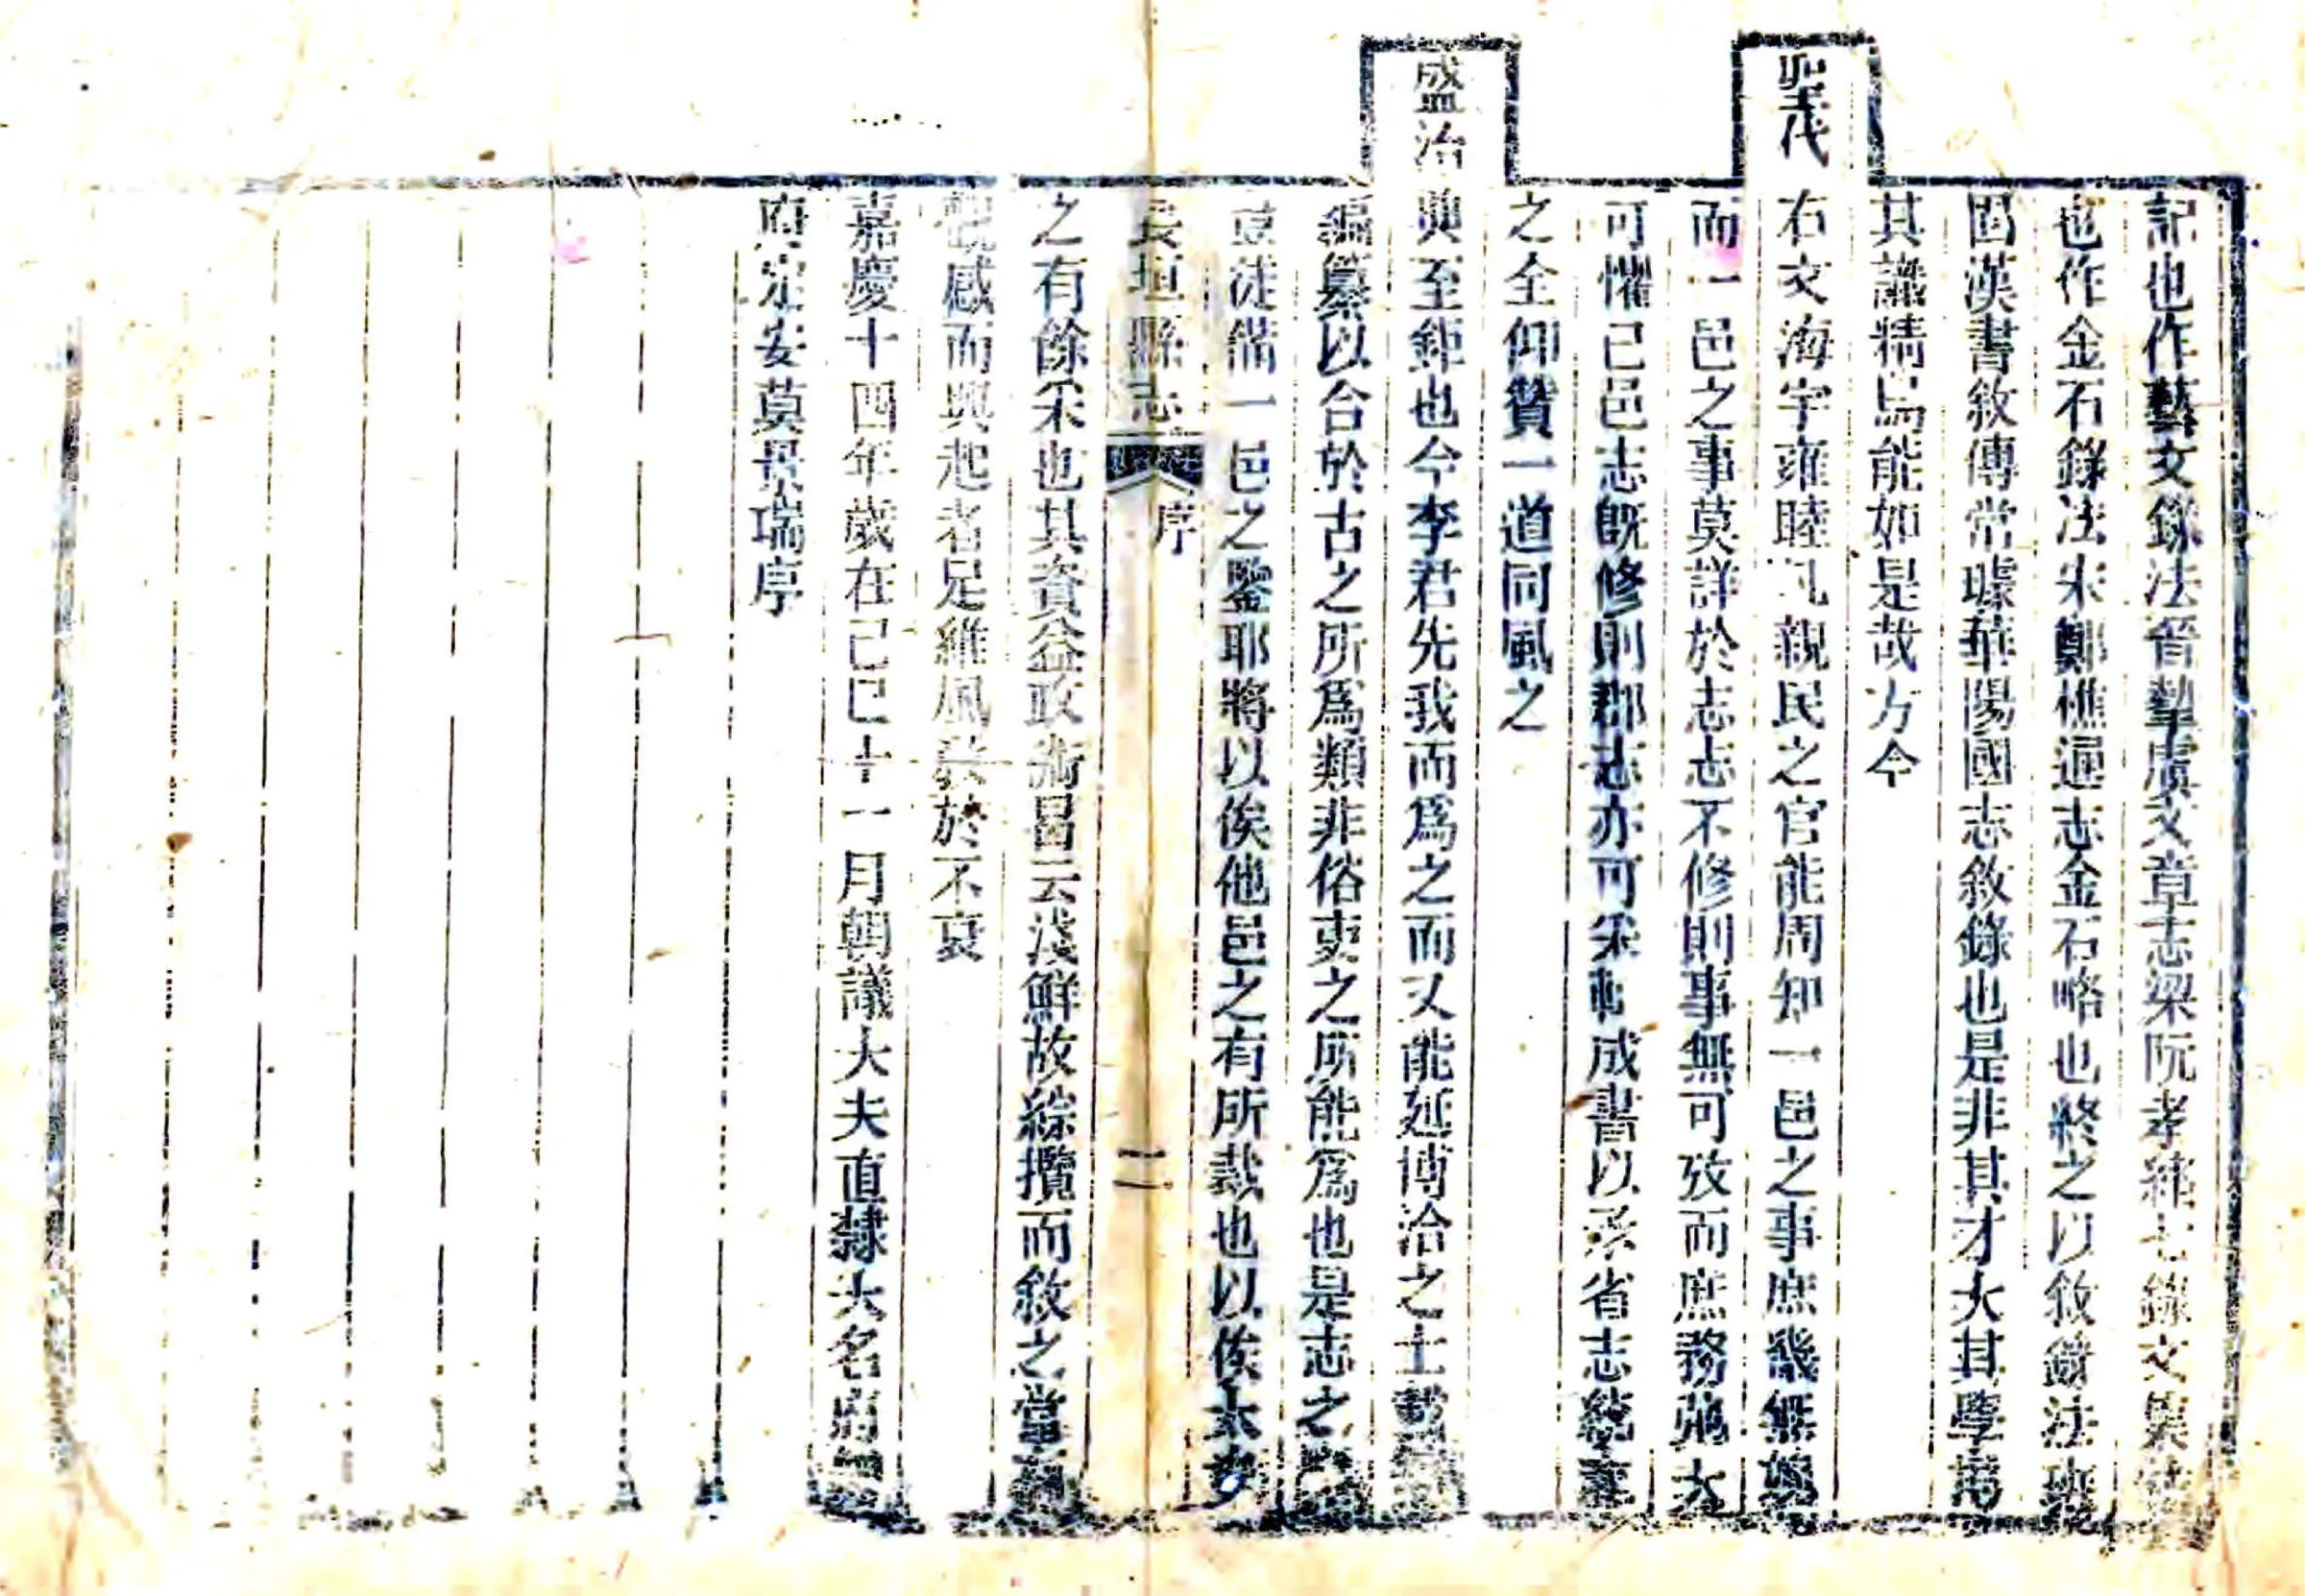 記也作藝文錄法晉摯虞文章志梁阮孝緒七錄文集
也作金石錄法宋鄭樵通志金石略也終之以敘錄法班
固漢書敘傳常璩華陽國志敘錄也是非其才大其學
其識精烏能如是哉方今
聖代右文海宇雍睦凡親民之官能周知一邑之事庶幾無
而一邑之事莫詳於志志不修則事無可攷而庶務弛大
可懼已邑志既修則郡志亦可采輯成書以承省志統
之全仰贊一道同風之
盛治典至鉅也今李君先我而為之而又能延博洽之士
編纂以合於古之所為類非俗吏之所能為也是志之
豈徒備一邑之鑒耶將以俟他邑之有所裁也以俟
長垣縣志 序 二
之有餘采也其資益政術曷云淺鮮故綜攬而敘之當
觀感而興起者足維風於不衰
嘉慶十四年歲在己巳十一月朝議大夫直隸大名府知
府定安莫景瑞序